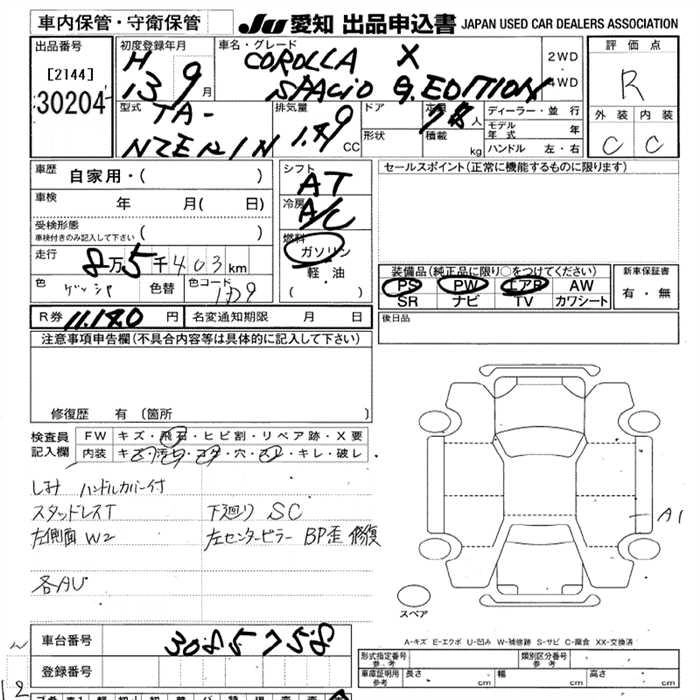 車内保管・守衛保管
JU 愛知 出品申込書 JAPAN USED CAR DEALERS ASSOCIATION
出品番号
[2144]
30204
初度登録年月
H
13 9 月
車名・グレード
COROLLA X
SPACIO G.EDITION
2WD
4WD
評価点
R
外装 内装
C C
型式
TA-
NZE111N
排気量
1.49 CC
ドア
形状
定員
人
積載
kg
ディーラー・並行
モデル年式 年
ハンドル 左・右
車歴
自家用・( )
車検
年 月( 日)
受検形態
車検付きのみ記入して下さい
走行
8万5千403km
色
色替
色コード
1D9
シフト
AT
冷房
A/C
燃料
ガソリン
軽油
( )
セールスポイント(正常に機能するものに限ります)
装備品(純正品に限り○をつけてください)
PS PW エアB AW
SR ナビ TV カワシート
新車保証書
有・無
R券 11.180 円
名変通知期限 月 日
後日品
注意事項申告欄(不具合内容等は具体的に記入して下さい)
修復歴 有 (箇所
検査員
記入欄
FW キズ・飛石・ヒビ割・リペア跡・X要
内装 キズ・汚れ・コゲ・穴・スレ・キレ・破レ
しみ ハンドルカバー付
スタッドレスT 下廻り SC
左側面 W2 左センターピラー BP歪 修復
各AU
A1
スペア
A-キズ E-エクボ U-凹み W-補修跡 S-サビ C-腐食 XX-交換済
車台番号
3085758
登録番号
形式指定番号
参考
類別区分番号
参考
車庫証明用
参考
長さ cm
幅 cm
高さ cm